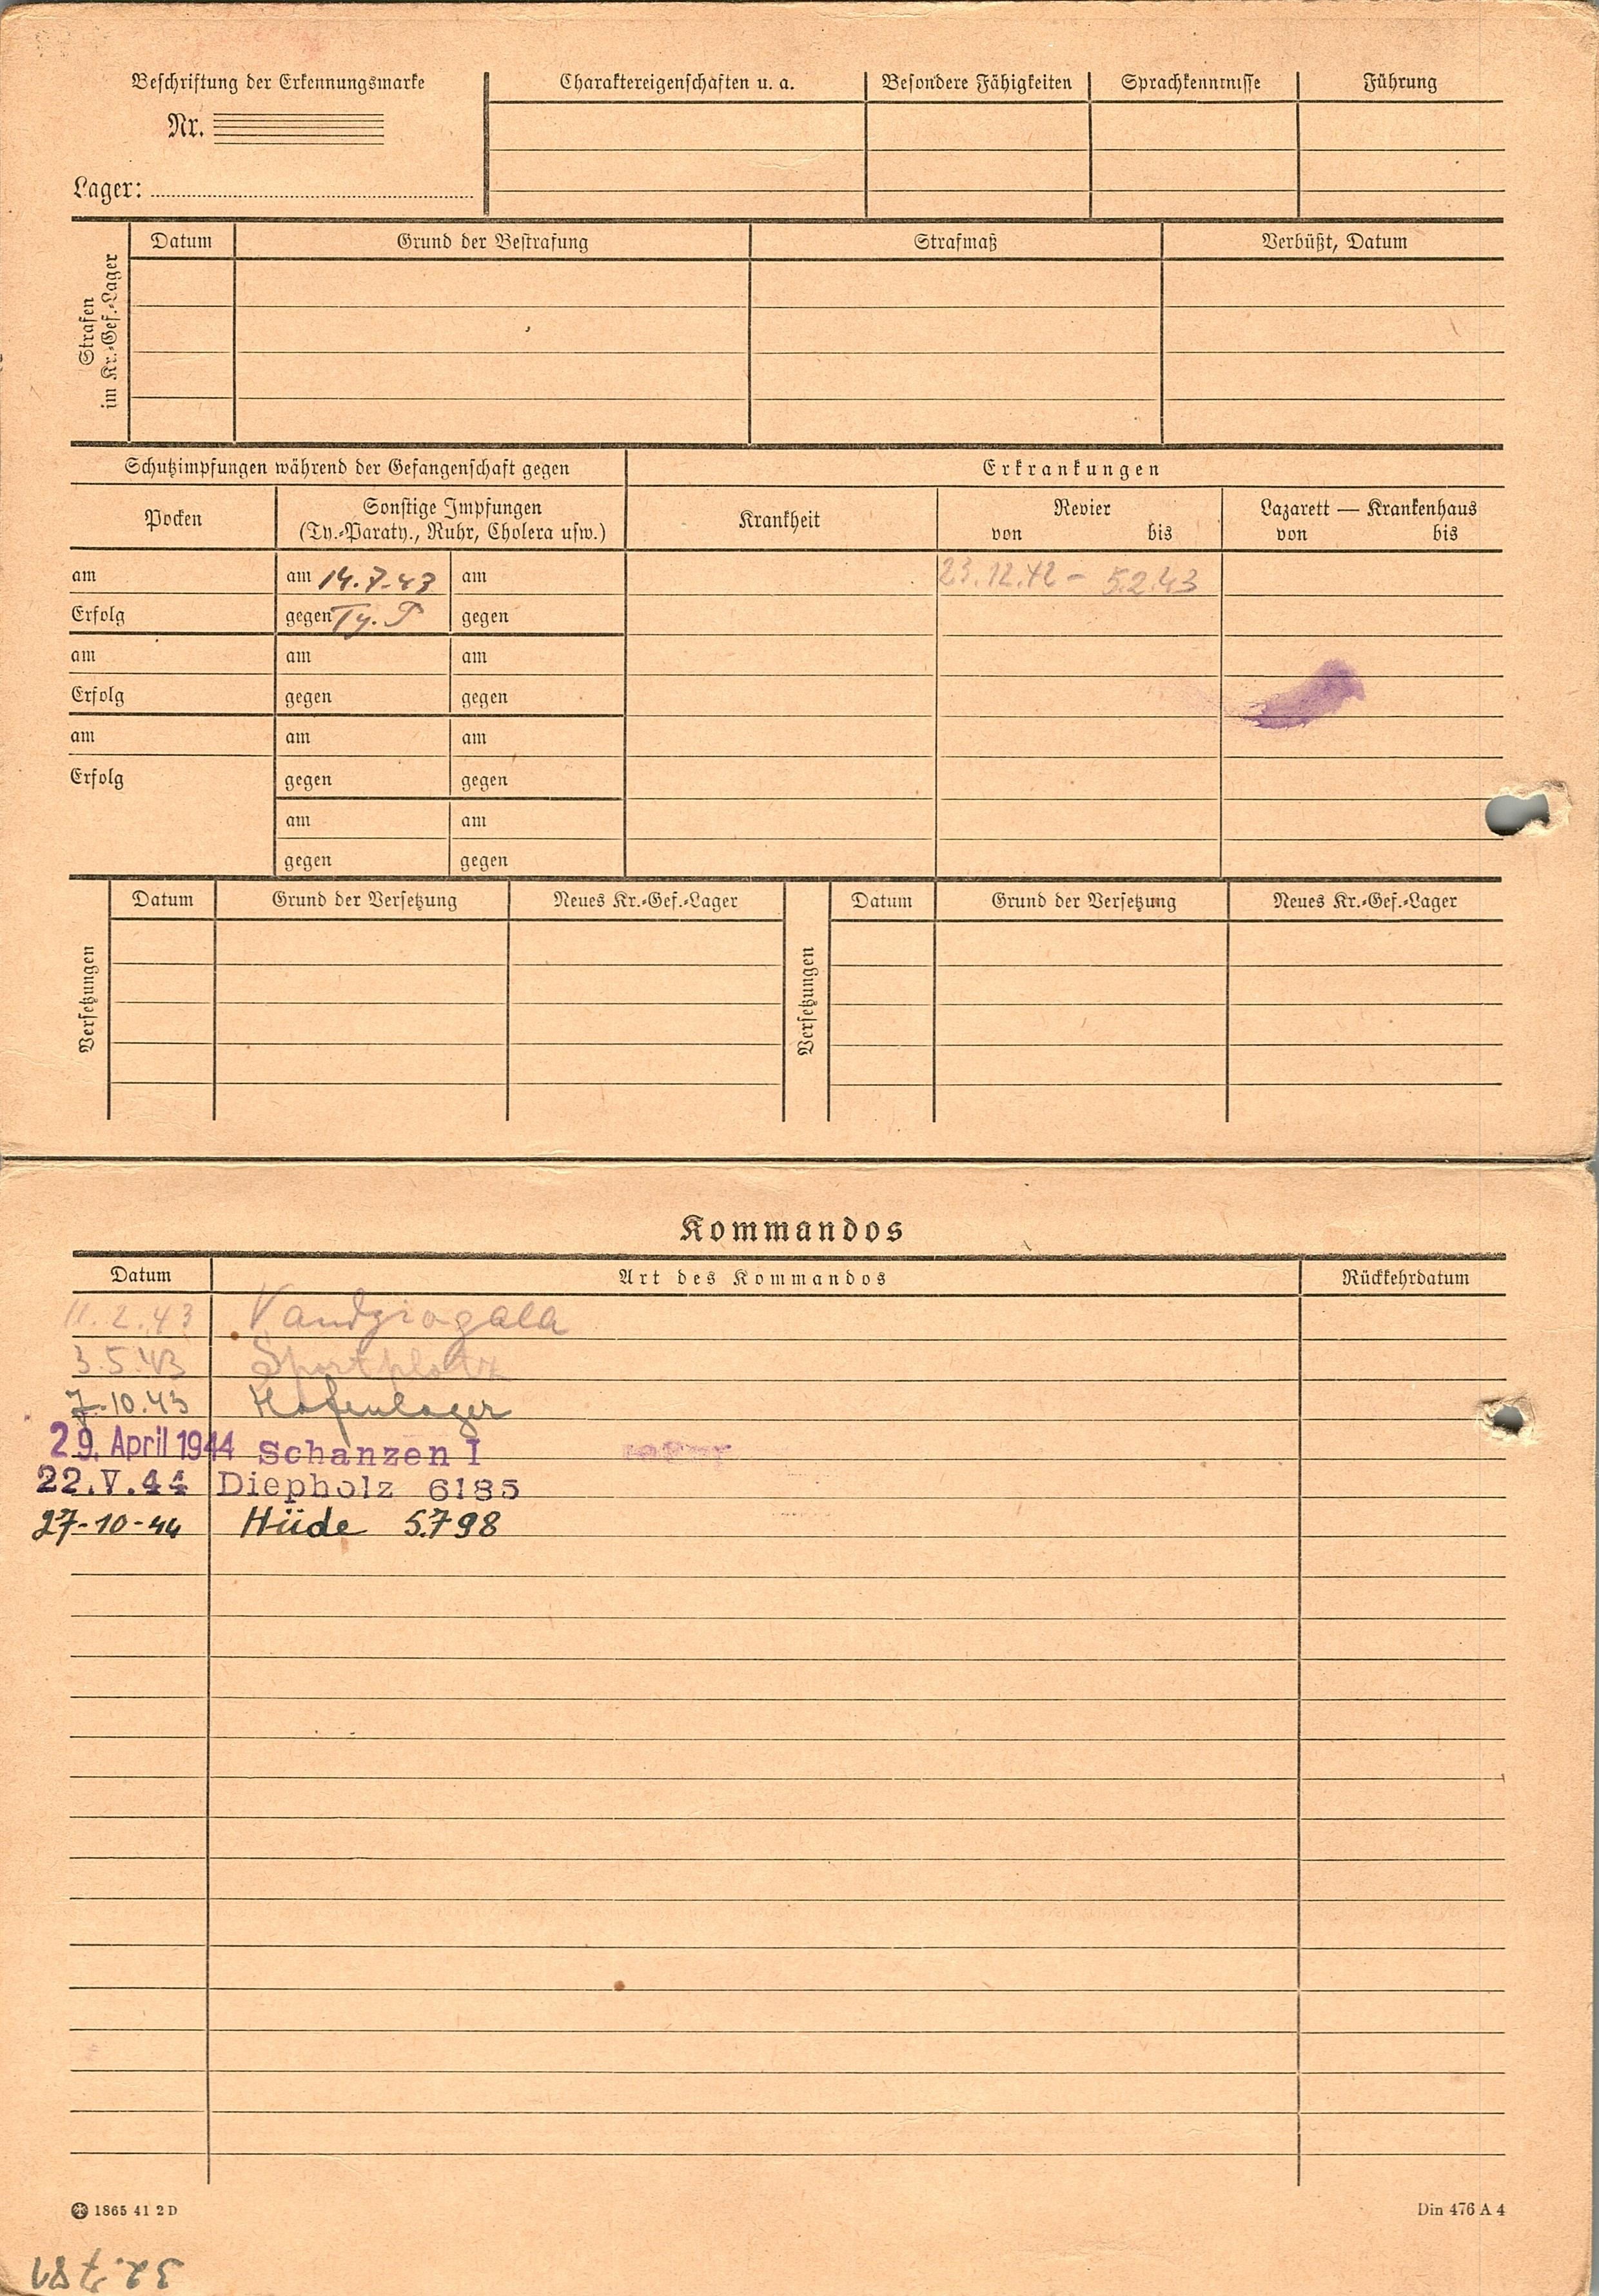 Beschriftung der Erkennungsmarke
Nr.
Lager:
Charaktereigenschaften u. a.
Besondere Fähigkeiten
Sprachkenntnisse
Führung
Strafen
im Kr.-Gef.-Lager
Datum
Grund der Bestrafung
Strafmaß
Verbüßt, Datum
Schutzimpfungen während der Gefangenschaft gegen
Erkrankungen
Pocken
Sonstige Impfungen
(Ty.-Paraty., Ruhr, Cholera usw.)
Krankheit
Revier
von bis
Lazarett — Krankenhaus
von bis
am am 14.7.43 am 23.12.42 - 5.2.43
Erfolg gegen Ty. P gegen
am am am
Erfolg gegen gegen
am am am
Erfolg gegen gegen
am am
gegen gegen
Versetzungen
Datum Grund der Versetzung Neues Kr.-Gef.-Lager
Versetzungen
Datum Grund der Versetzung Neues Kr.-Gef.-Lager
Kommandos
Datum Art des Kommandos Rückkehrdatum
11.2.43 Vandziogala
3.5.43 Sportplatz
7.10.43 Hafenlager
29. April 1944 Schanzen I
22.V.44 Diepholz 6185
27-10-44 Hüde 5798
1865 41 2 D
Din 476 A 4
32.781